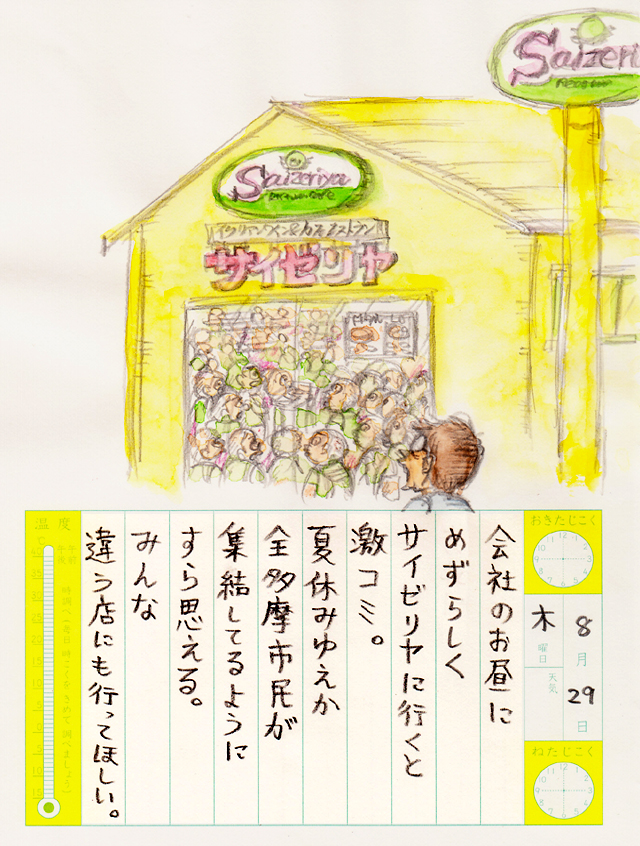 Saizeriya
Saizeri
サイゼリヤ
おきたじこく
8月
29日
木曜日
天気
ねたじこく
会社のお昼に
めずらしく
サイゼリヤに行くと
激コミ。
夏休みゆえか
全多摩市民が
集結してるように
すら思える。
みんな
違う店にも行ってほしい。
温度
午前
午後